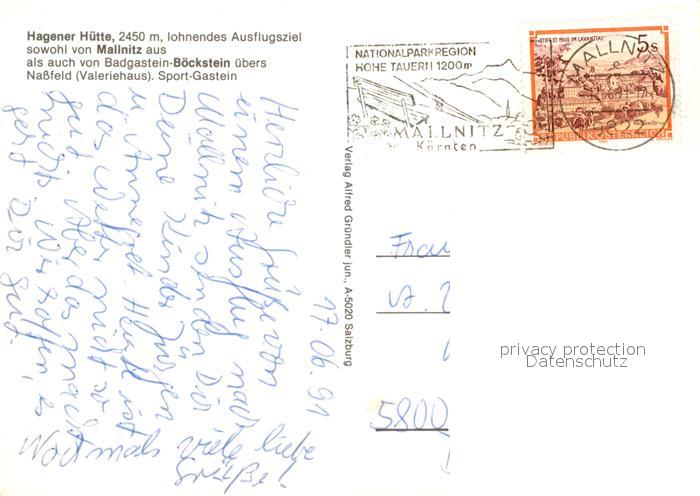 Hagener Hütte, 2450 m, lohnendes Ausflugsziel
sowohl von Mallnitz aus
als auch von Badgastein-Böckstein übers
Naßfeld (Valeriehaus). Sport-Gastein
NATIONALPARKREGION
HOHE TAUERN 1200m
MALLNITZ
Kärnten
STIFT ST. PAUL IM LAVANTTAL
5S
MALLNITZ
REPUBLIK ÖSTERREICH
Verlag Alfred Gründler jun., A-5020 Salzburg
17.06.91
Herzliche Grüße von
einem Ausflug nach
Mallnitz senden Dir
Deine Kinder Jürgen
u. Annegret. Heut ist
das Wetter nicht so
gut. Aber das macht
nichts. Wir hoffen, es
geht Dir gut.
Nochmals viele liebe
Grüße!
Frau
5800
privacy protection
Datenschutz